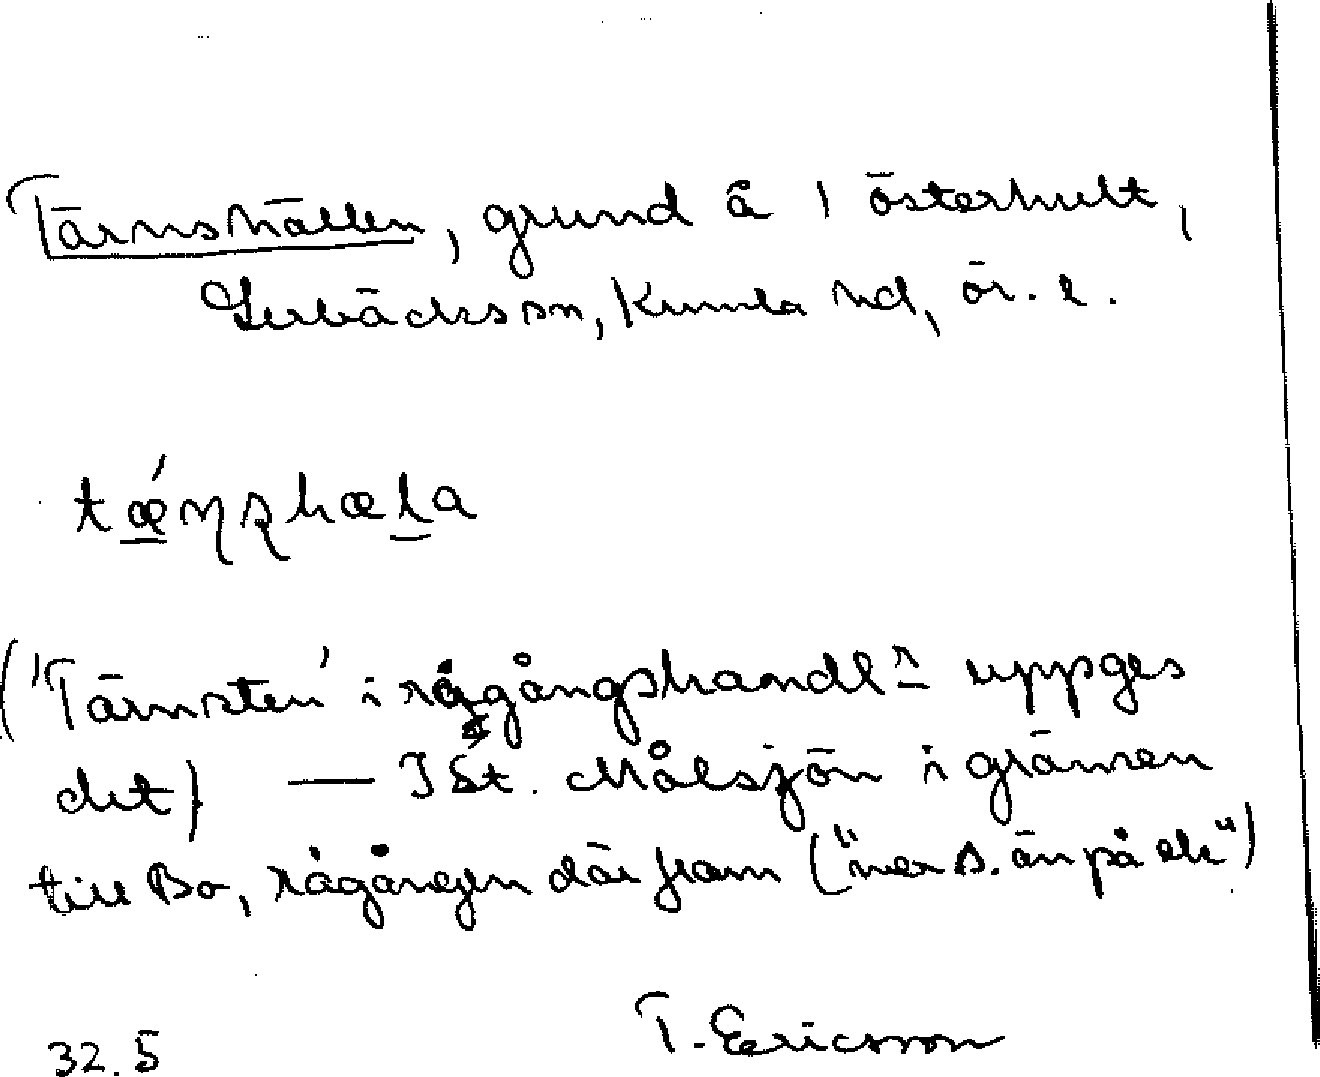 Tärnshällen, grund å 1 Österhult,
Lerbäcks sn, Kumla hd, Ör. l.
tǽɳʂhæɫa
('Tärnsten' i rågångshandl:r uppges
det) — I St. Målsjön i gränsen
till Bo, rågången där fram ("mer s. än på ek")
T. Ericsson
32.5